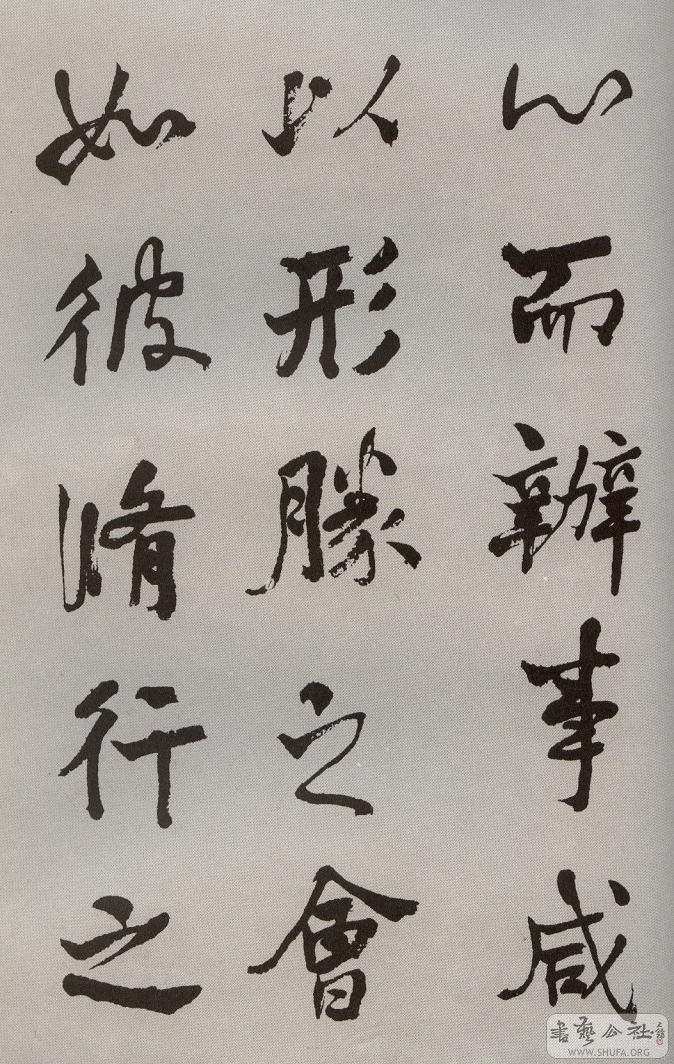 心而辦事咸
以形勝之會
如彼脩行之
書藝公社
WWW.SHUFA.ORG